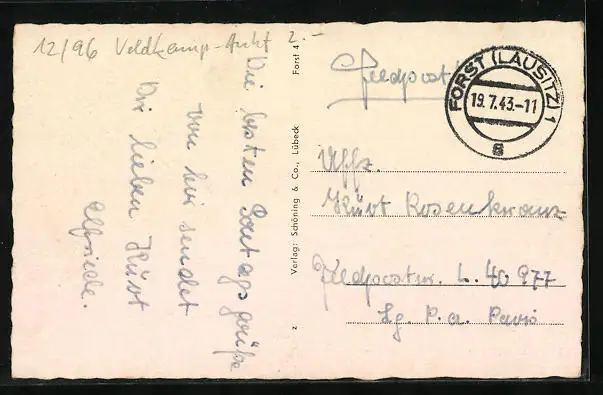 12/96 Veldkamp-Aukt 2.-
Die besten Sontagsgrüße
von hir sendet
Dir lieben Kurt
Elfriede.
Forst 4
Verlag: Schöning & Co., Lübeck
z
Feldpost
FORST (LAUSITZ) 1
19.7.43.-11
a
Uffz.
Kurt Rosenkranz
Feldpostnr. L. 40 977
Lg. P. a. Paris